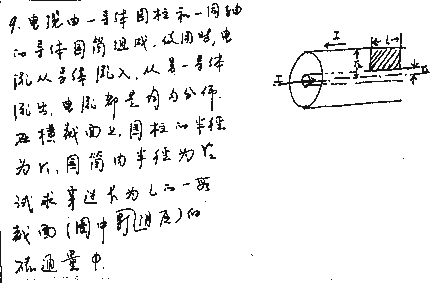 9. 电缆由一导体圆柱和一同轴
的导体圆筒组成, 使用时, 电
流从导体流入, 从另一导体
流出, 电流都是均匀分佈.
在横截面上, 圆柱的半径
为r₁, 圆筒内半径为r₂
试求穿过长为L的一段
截面(图中阴影区)的
磁通量Φ.
I
L
I